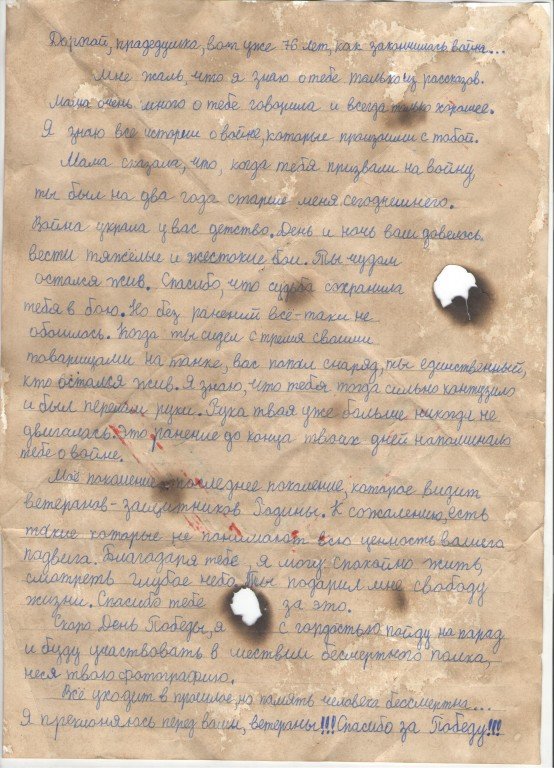 Дорогой, прадедушка, вот уже 76 лет, как закончилась война...
Мне жаль, что я знаю о тебе только из рассказов.
Мама очень много о тебе говорила и всегда только хорошее.
Я знаю все истории о войне, которые произошли с тобой.
Мама сказала, что, когда тебя призвали на войну
ты был на два года старше меня сегодняшнего.
Война украла у вас детство. День и ночь вам довелось
вести тяжёлые и жестокие бои. Ты чудом
остался жив. Спасибо, что судьба сохранила
тебя в бою. Но без ранений всё-таки не
обошлось. Когда ты сидел с тремя своими
товарищами на танке, вас попал снаряд, ты единственный,
кто остался жив. Я знаю, что тебя тогда сильно контузило
и был перелом руки. Рука твоя уже больше никогда не
двигалась. Это ранение до конца твоих дней напоминало
тебе о войне.
Моё поколение - последнее поколение, которое видит
ветеранов-защитников Родины. К сожалению, есть
такие которые не понимают всю ценность вашего
подвига. Благодаря тебе, я могу спокойно жить,
смотреть глубое небо. Ты подарил мне свободу
жизни. Спасибо тебе за это.
Скоро День Победы, я с гордостью пойду на парад
и буду участвовать в шествии бесмертного полка,
неся твою фотографию.
Всё уходит в прошлое, но память человека бессмертна...
Я преклоняюсь перед вами, ветераны!!! Спасибо за Победу!!!